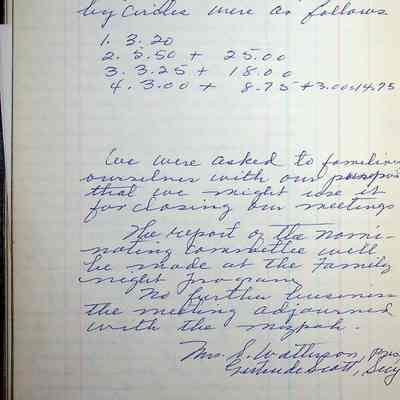 by Circles were as follows
1. 3.20
2. 5.50 + 25.00
3. 3.25 + 18.00
4. 3.00 + 8.75 + 3.00 = 14.75
We were asked to familiar
ourselves with our purpose
that we might use it
for closing our meetings
The report of the nomi-
nating committee will
be made at the Family
night Program
No further business
the meeting adjourned
with the mizpah.
Mrs. S. Watterson, pres
Gertrude Scott, Secy